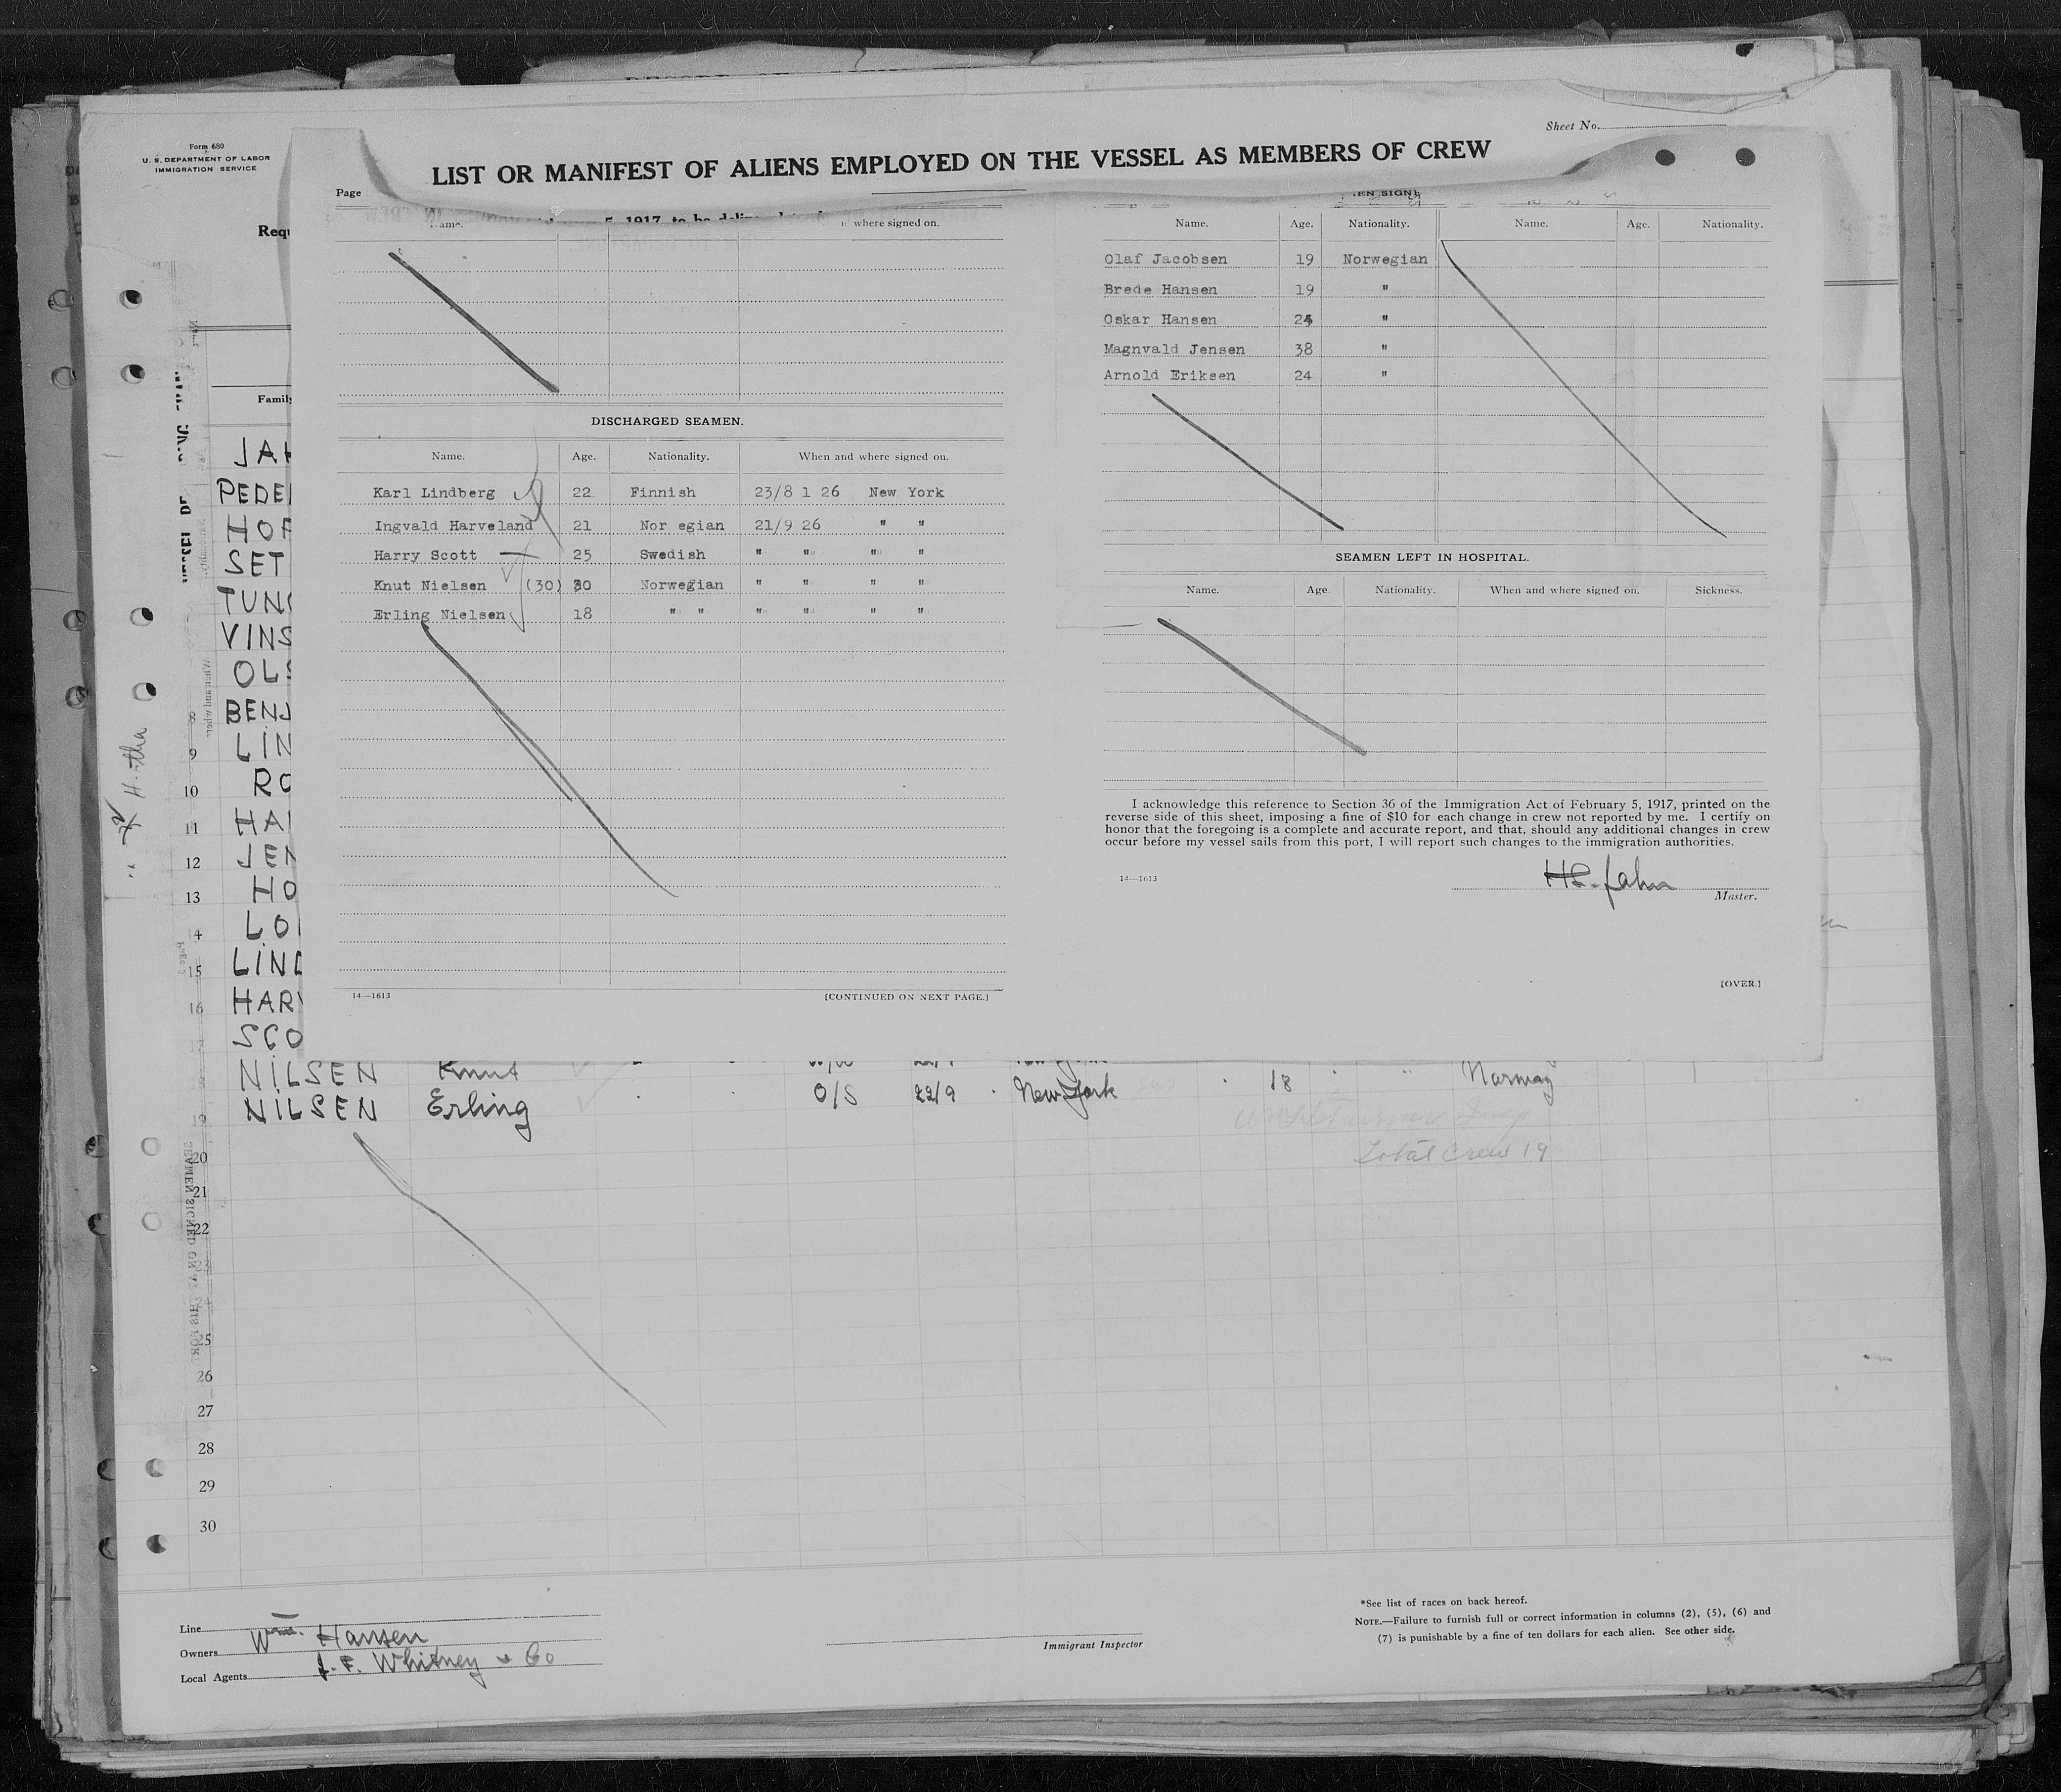 Form 680
U. S. DEPARTMENT OF LABOR
IMMIGRATION SERVICE
Sheet No.
LIST OR MANIFEST OF ALIENS EMPLOYED ON THE VESSEL AS MEMBERS OF CREW
Page
5, 1917, to be
Name. where signed on.
DISCHARGED SEAMEN.
Name. Age. Nationality. When and where signed on.
Karl Lindberg 22 Finnish 23/8 1 26 New York
Ingvald Harveland 21 Nor egian 21/9 26 " "
Harry Scott 25 Swedish " " " "
Knut Nielsen (30) 30 Norwegian " " " "
Erling Nielsen 18 " " " " " "
14—1613 [CONTINUED ON NEXT PAGE.]
Name. Age. Nationality. Name. Age. Nationality.
Olaf Jacobsen 19 Norwegian
Brede Hansen 19 "
Oskar Hansen 24 "
Magnvald Jensen 38 "
Arnold Eriksen 24 "
SEAMEN LEFT IN HOSPITAL.
Name. Age Nationality. When and where signed on. Sickness.
I acknowledge this reference to Section 36 of the Immigration Act of February 5, 1917, printed on the
reverse side of this sheet, imposing a fine of $10 for each change in crew not reported by me. I certify on
honor that the foregoing is a complete and accurate report, and that, should any additional changes in crew
occur before my vessel sails from this port, I will report such changes to the immigration authorities.
14—1613
Master.
[OVER.]
Requ
Family
JAH
PEDE
HOF
SET
TUN
VINS
OLS
8 BENJ
9 LIN
10 RO
11 HA
12 JEN
13 HO
4 LO
15 LIND
16 HARV
17 SCO
NILSEN Knut
19 NILSEN Erling O/S 22/9 New York 18 " Norway
Total Crew 19
20
21
22
25
26
27
28
29
30
Line
Owners Wm. Hansen
Local Agents J. F. Whitney & Co
Immigrant Inspector
*See list of races on back hereof.
NOTE.—Failure to furnish full or correct information in columns (2), (5), (6) and
(7) is punishable by a fine of ten dollars for each alien. See other side.